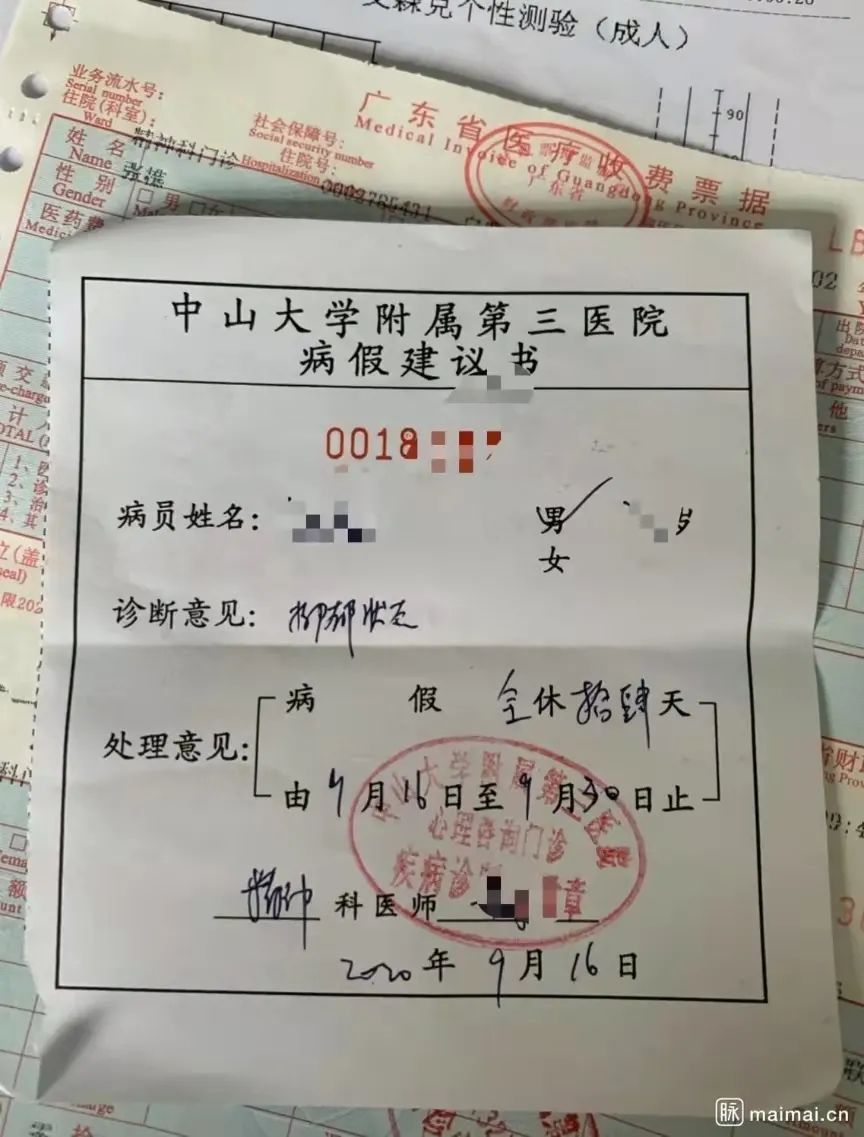 艾森克个性测验（成人）
90
业务流水号：
Serial number
住院(科室)：
Ward
精神科门诊
社会保障号：
Social security number
住院号：
Hospitalization
0002785431
广东省医疗收费票据
Medical Invoice of Guangdong Province
广东省
姓 名
Name
性 别
Gender
男
医药费
LB
02
中山大学附属第三医院
病假建议书
0018
病员姓名：
男
女
岁
诊断意见：抑郁状态
处理意见：
病 假 全休拾肆天
由9月16日至9月30日止
中山大学附属第三医院
心理咨询门诊
疾病诊断 章
精神科医师
2020年9月16日
脉 maimai.cn